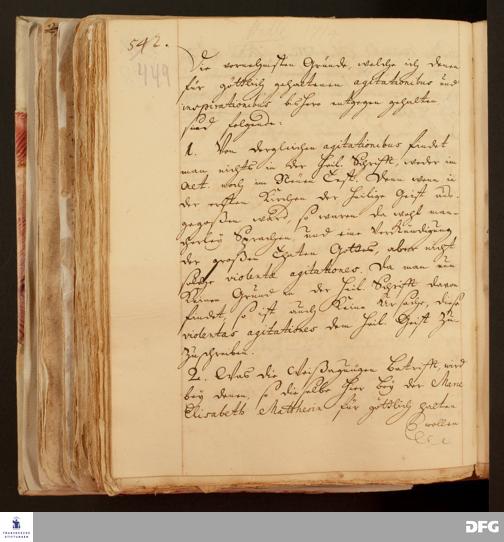 542.
449
Die vornehmsten Gründe, welche ich denen
für göttlich gehaltenen agitationibus und
inspirationibus bishero entgegen gehalten
sind folgende:
1. Von dergleichen agitationibus findet
man nichts in der Heil. Schrifft, weder im
Alt. noch im Neuen Test. Denn wenn in
der ersten Kirchen der Heilige Geist aus-
gegoßen ward, so waren da wohl man-
cherley Sprachen, und eine Verkündigung
der großen Thaten Gottes, aber nicht
solche violentae agitationes. Da man nun
keinen Grund in der Heil. Schrifft davon
findet, so ist auch keine Ursache, diese
violentas agitationes dem Heil. Geist zu-
zuschreiben.
2. Was die Weißagungen betrifft, wird
bey denen, so dieselbe hier bey der Marie
Elisabeth Matthesin für göttlich halten
wollen
FRANCKESCHE
STIFTUNGEN
DFG